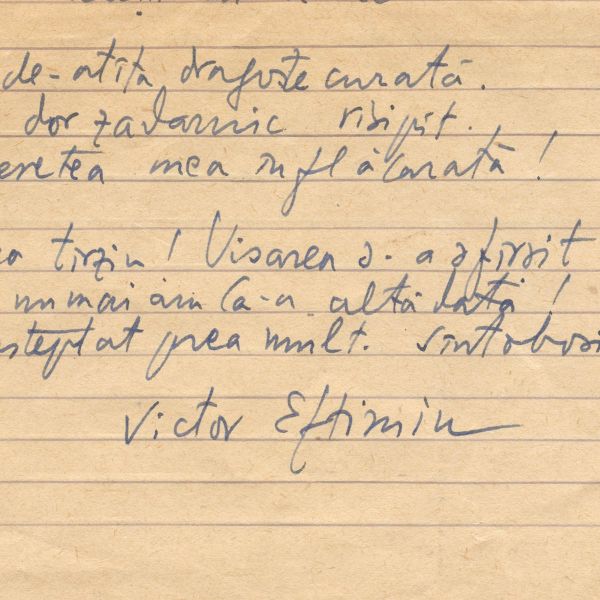 de-atîta dragoste curată.
dor zadarnic risipit.
mea înflăcarată!
tîrziu! Visarea s-a sfîrsit
numai am ca-a altă dată!
prea mult. Sînt obosi
Victor Eftimiu